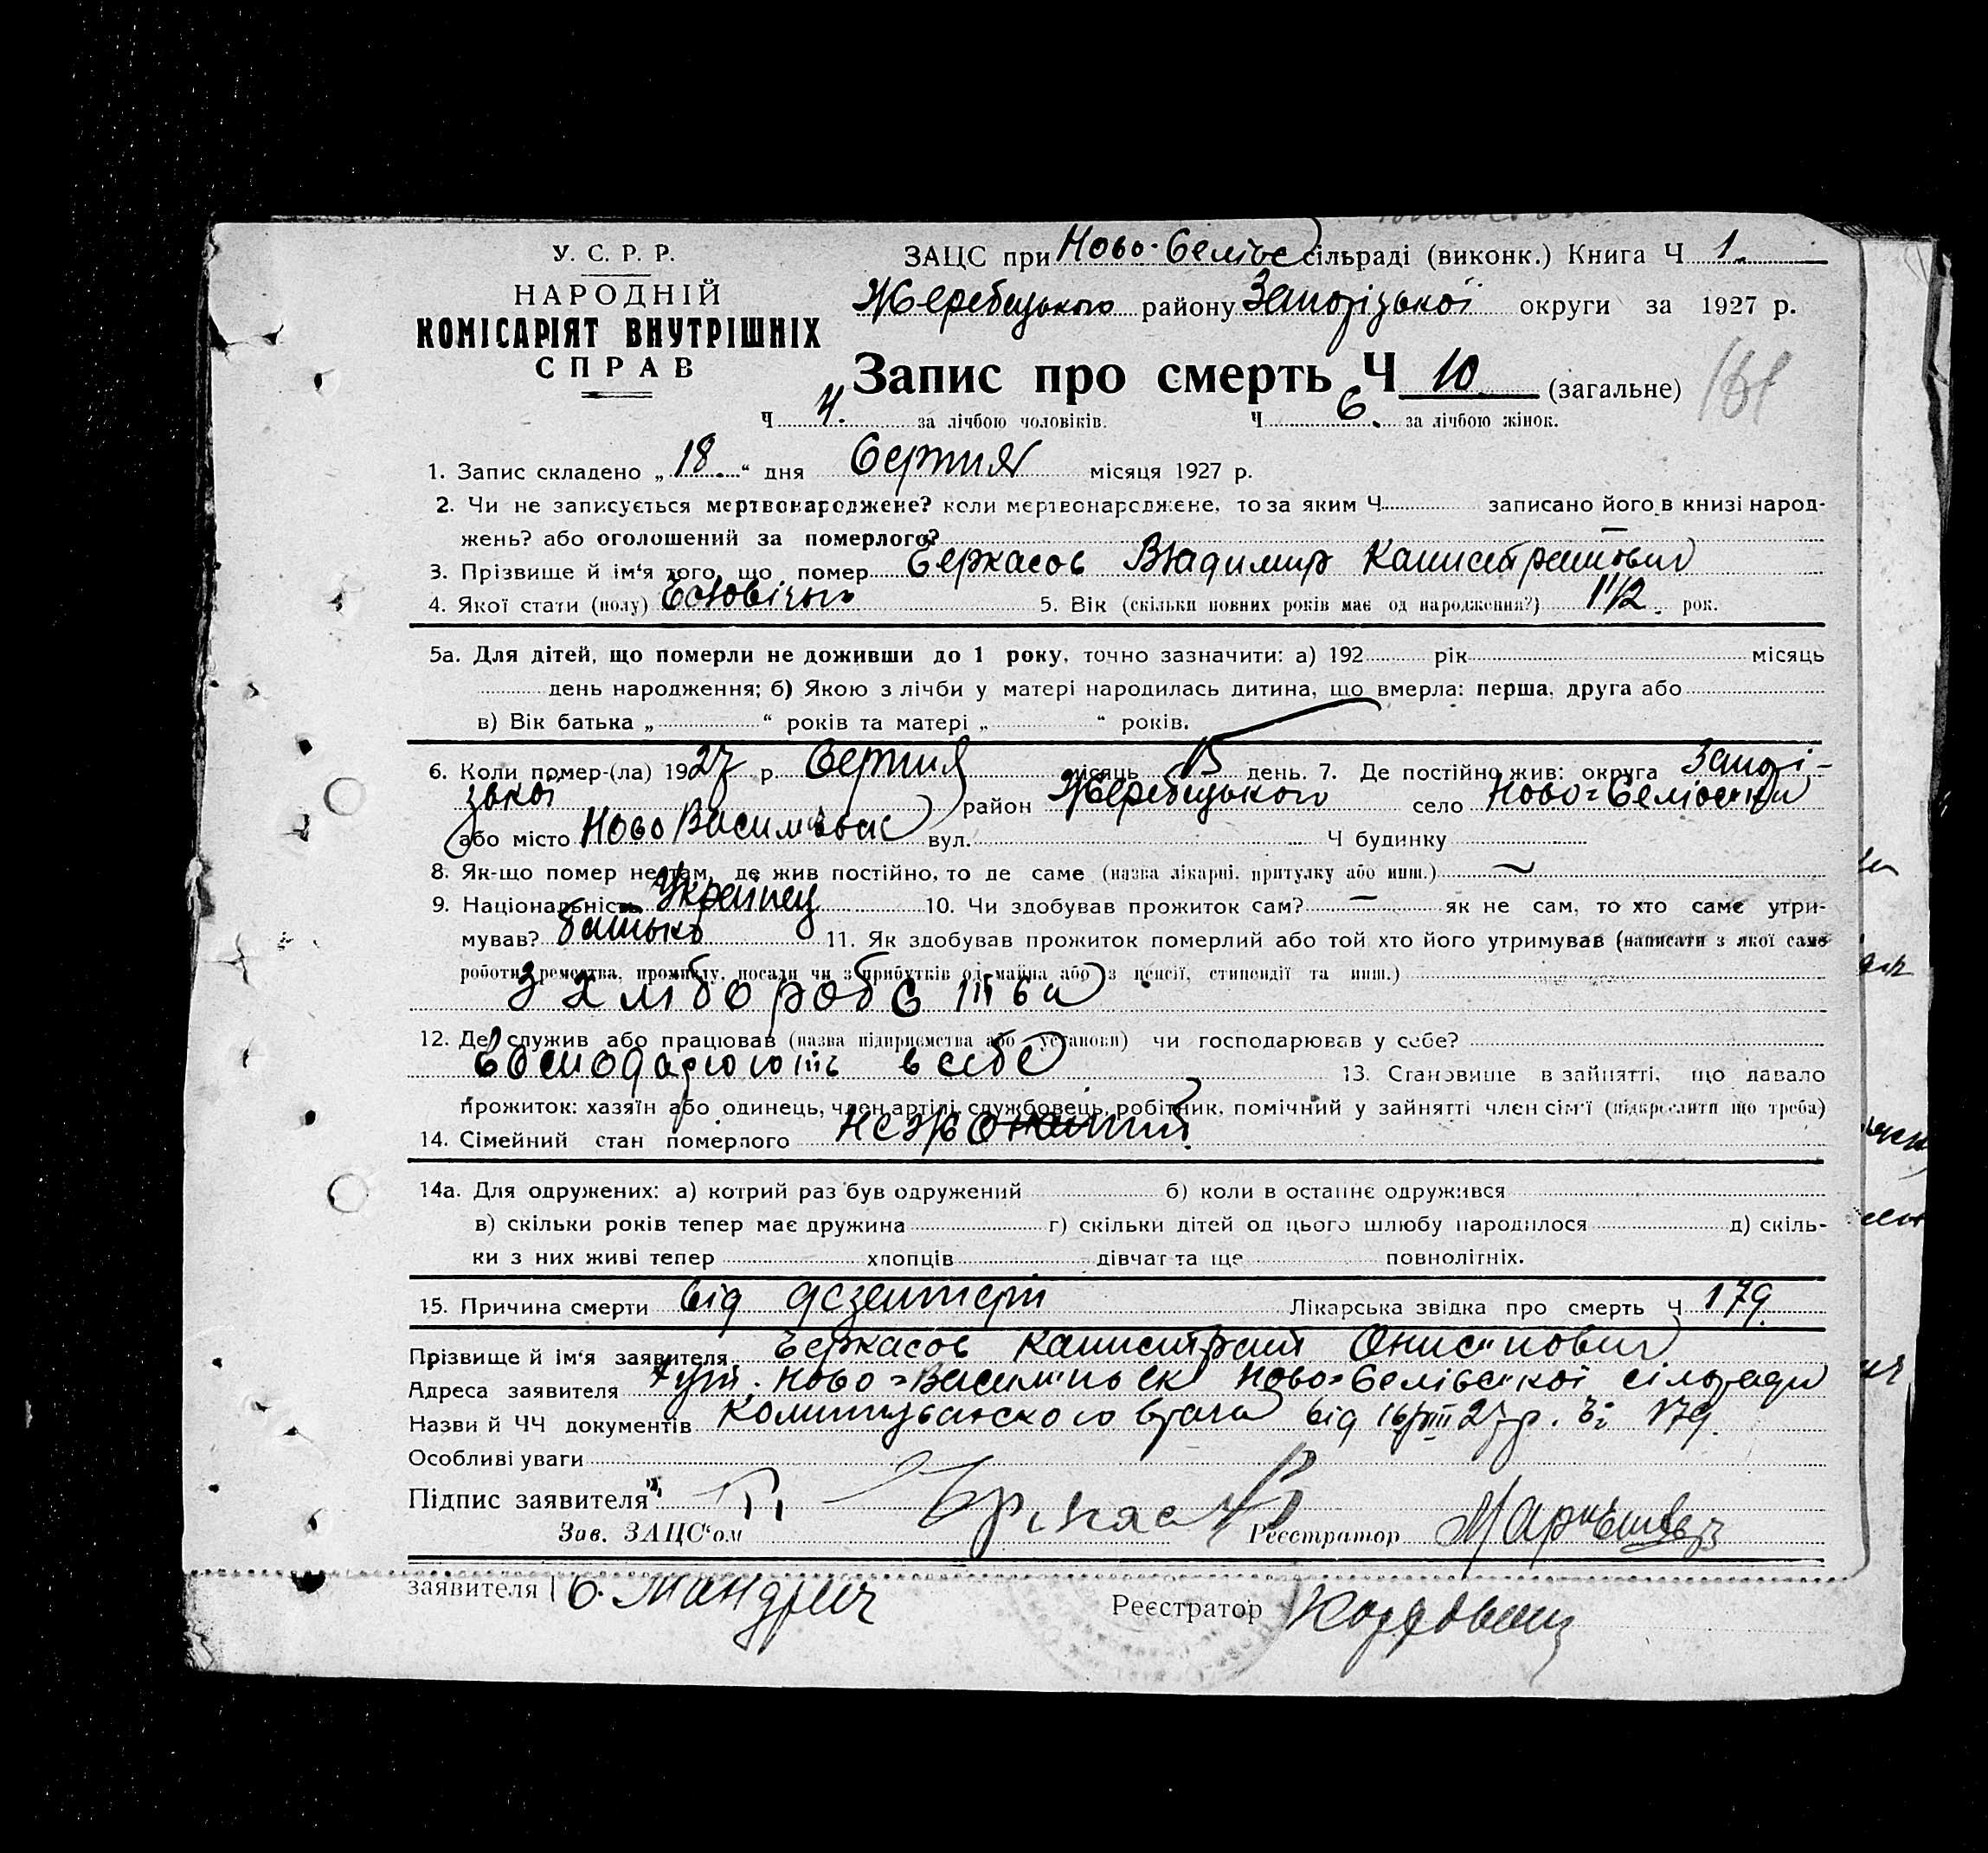 У. С. Р. Р.
НАРОДНІЙ
КОМІСАРІЯТ ВНУТРІШНІХ
СПРАВ
ЗАЦС при Ново-Селівс сільраді (виконк.) Книга Ч 1.
Жеребецького району Запорізької округи за 1927 р.
Запис про смерть Ч 10 (загальне) 181
Ч 4. за лічбою чоловіків. Ч 6. за лічбою жінок.
1. Запис складено „ 18 “ дня Серпня місяця 1927 р.
2. Чи не записується мертвонароджене? коли мертвонароджене, то за яким Ч записано його в книзі народ-
жень? або оголошений за померлого? —
3. Прізвище й ім‘я того, що помер Черкасов Владимир Калистратович
4. Якої стати (полу) Чоловічьої 5. Вік (скільки повних років має од народження?) 1 1/2. рок.
5а. Для дітей, що померли не доживши до 1 року, точно зазначити: а) 192 рік місяць
день народження; б) Якою з лічби у матері народилась дитина, що вмерла: перша, друга або
в) Вік батька „ “ років та матері „ “ років.
6. Коли помер-(ла) 1927 р. Серпня місяць 15 день. 7. Де постійно жив: округа Запорі-
зької район Жеребецького село Ново-Селівськи
або місто Ново Васильвськ вул. Ч будинку
8. Як-що помер не там, де жив постійно, то де саме (назва лікарні, притулку або инш.) —
9. Національність Украінец 10. Чи здобував прожиток сам? — як не сам, то хто саме утри-
мував? батько 11. Як здобував прожиток померлий або той хто його утримував (написати з якої саме
роботи, ремества, промислу, посади чи з прибутків од майна або з пенсії, стипендії та инш.)
З хліборобства
12. Де служив або працював (назва підприємства або установи) чи господарював у себе?
Господарюють в себе 13. Становище в зайнятті, що давало
прожиток: хазяїн або одинець, член артілі, службовець, робітник, помічний у зайнятті член сім‘ї (підкреслити що треба)
14. Сімейний стан померлого нежонатий
14а. Для одружених: а) котрий раз був одружений б) коли в останнє одружився
в) скільки років тепер має дружина г) скільки дітей од цього шлюбу народилося д) скіль-
ки з них живі тепер хлопців дівчат та ще повнолітніх.
15. Причина смерти від дезентерії Лікарська звідка про смерть Ч 179.
Прізвище й ім‘я заявителя Черкасов Калистрат
Адреса заявителя хут. Ново-Васильвськ Ново-Селівської сільради
Назви й ЧЧ документів врача від 16/VIII 27 р. Ч 179.
Особливі уваги
Підпис заявителя
Зав. ЗАЦС‘ом Реєстратор
заявителя Реєстратор